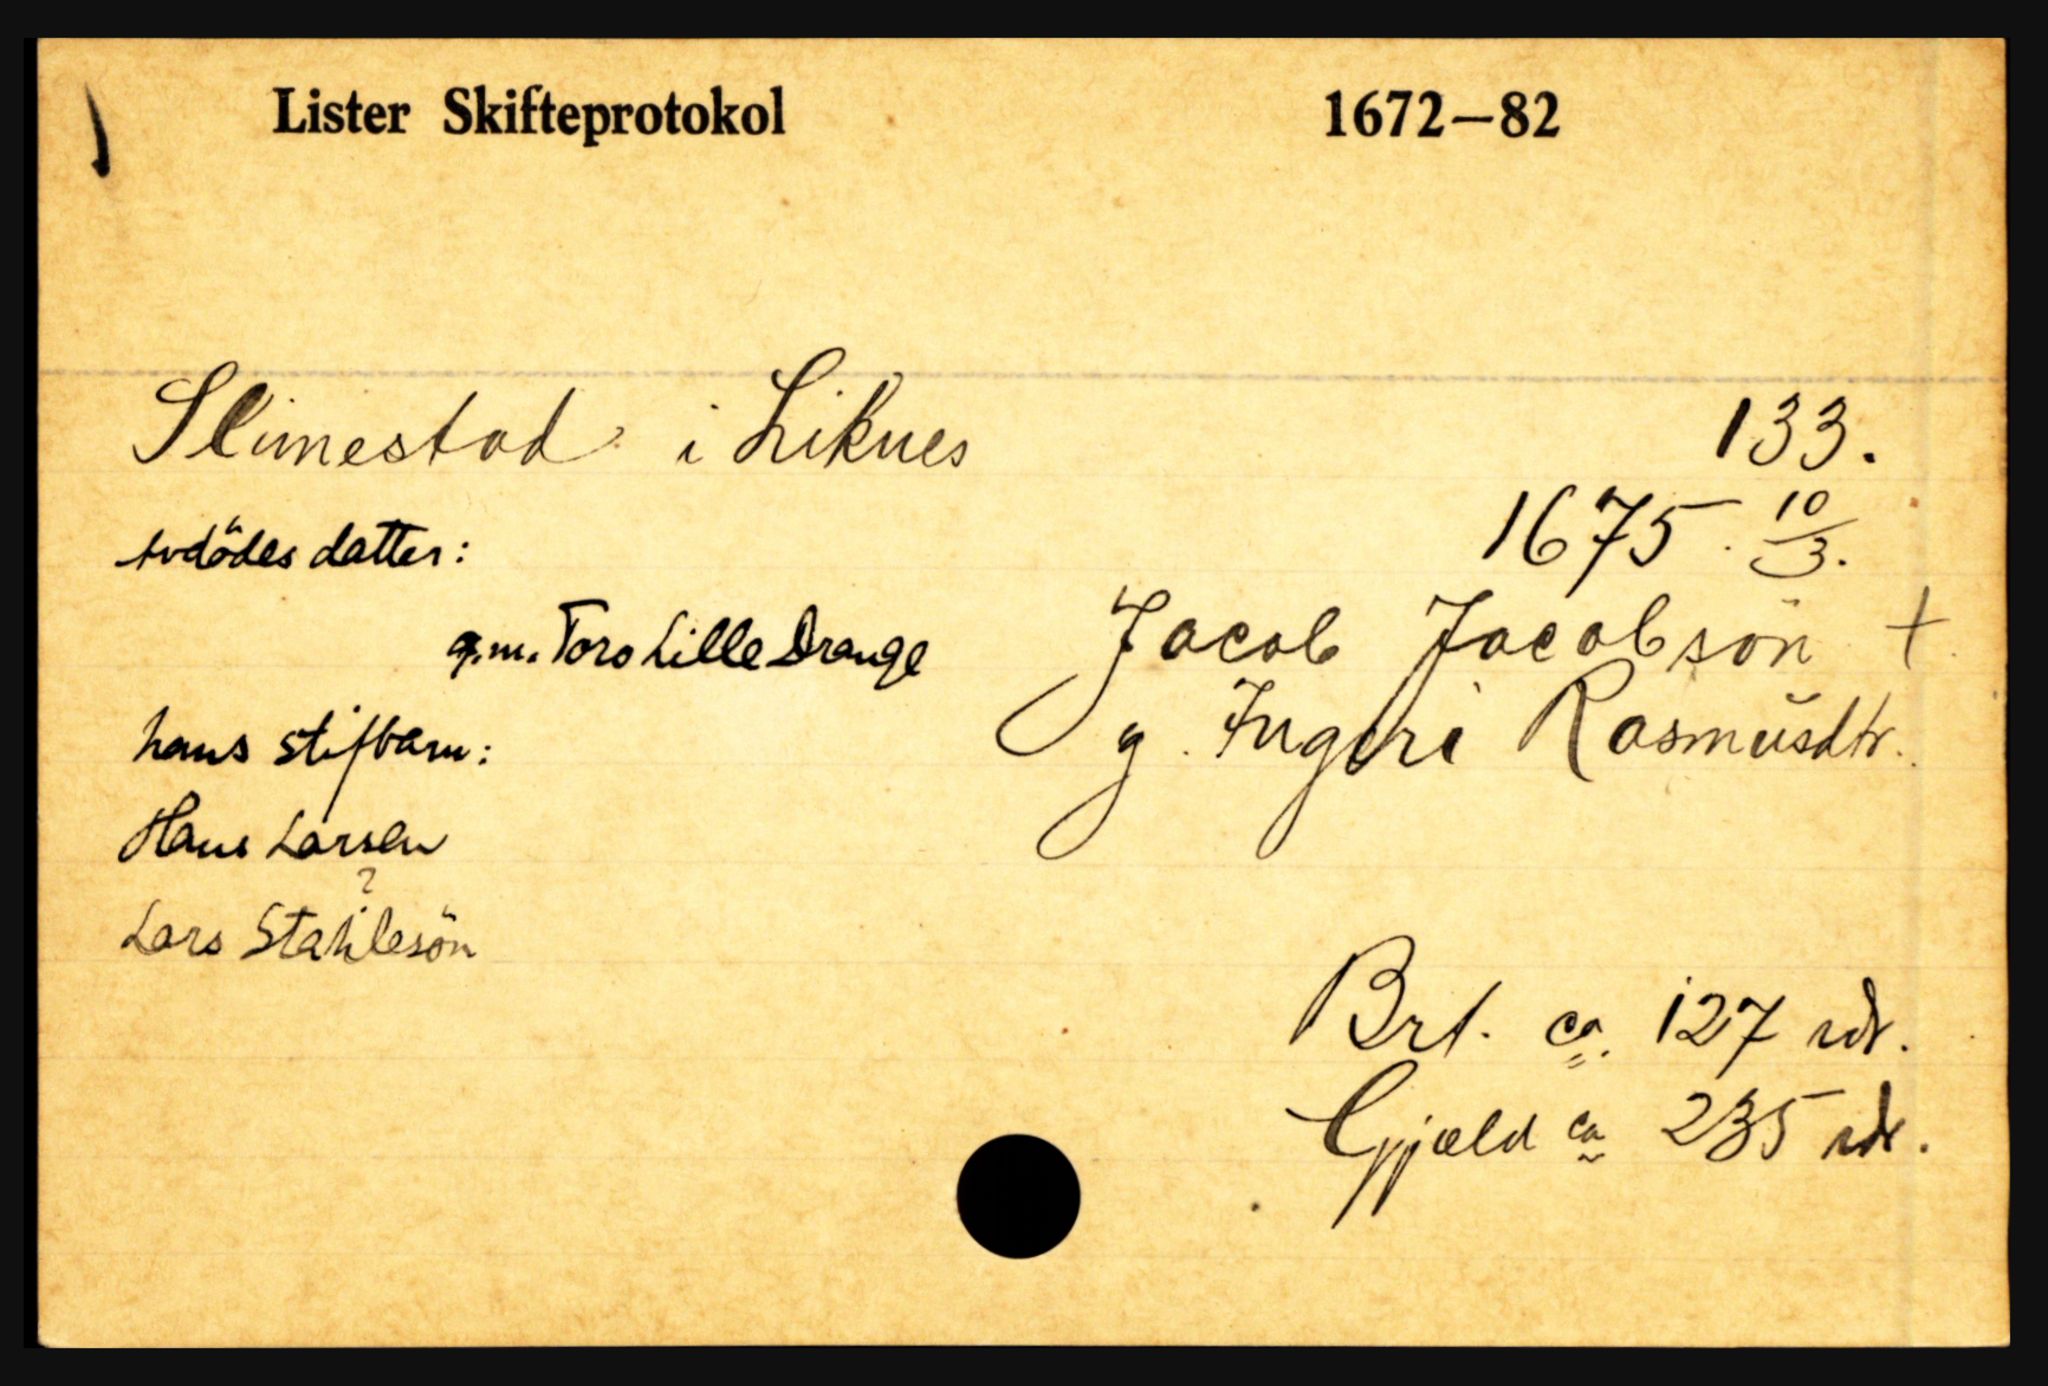 Lister Skifteprotokol 1672–82
Slimestad i Liknes 133.
1675 10/3.
Avdödes datter:
g.m. Toro Lille Drange
Jacob Jacobsön +
g. Ingeri Rasmusdtr.
hans stifbarn:
Hans Larsen
?
Lars Stahlesön
Brt. ca. 127 rdr.
Gjæld ca 235 rdr.